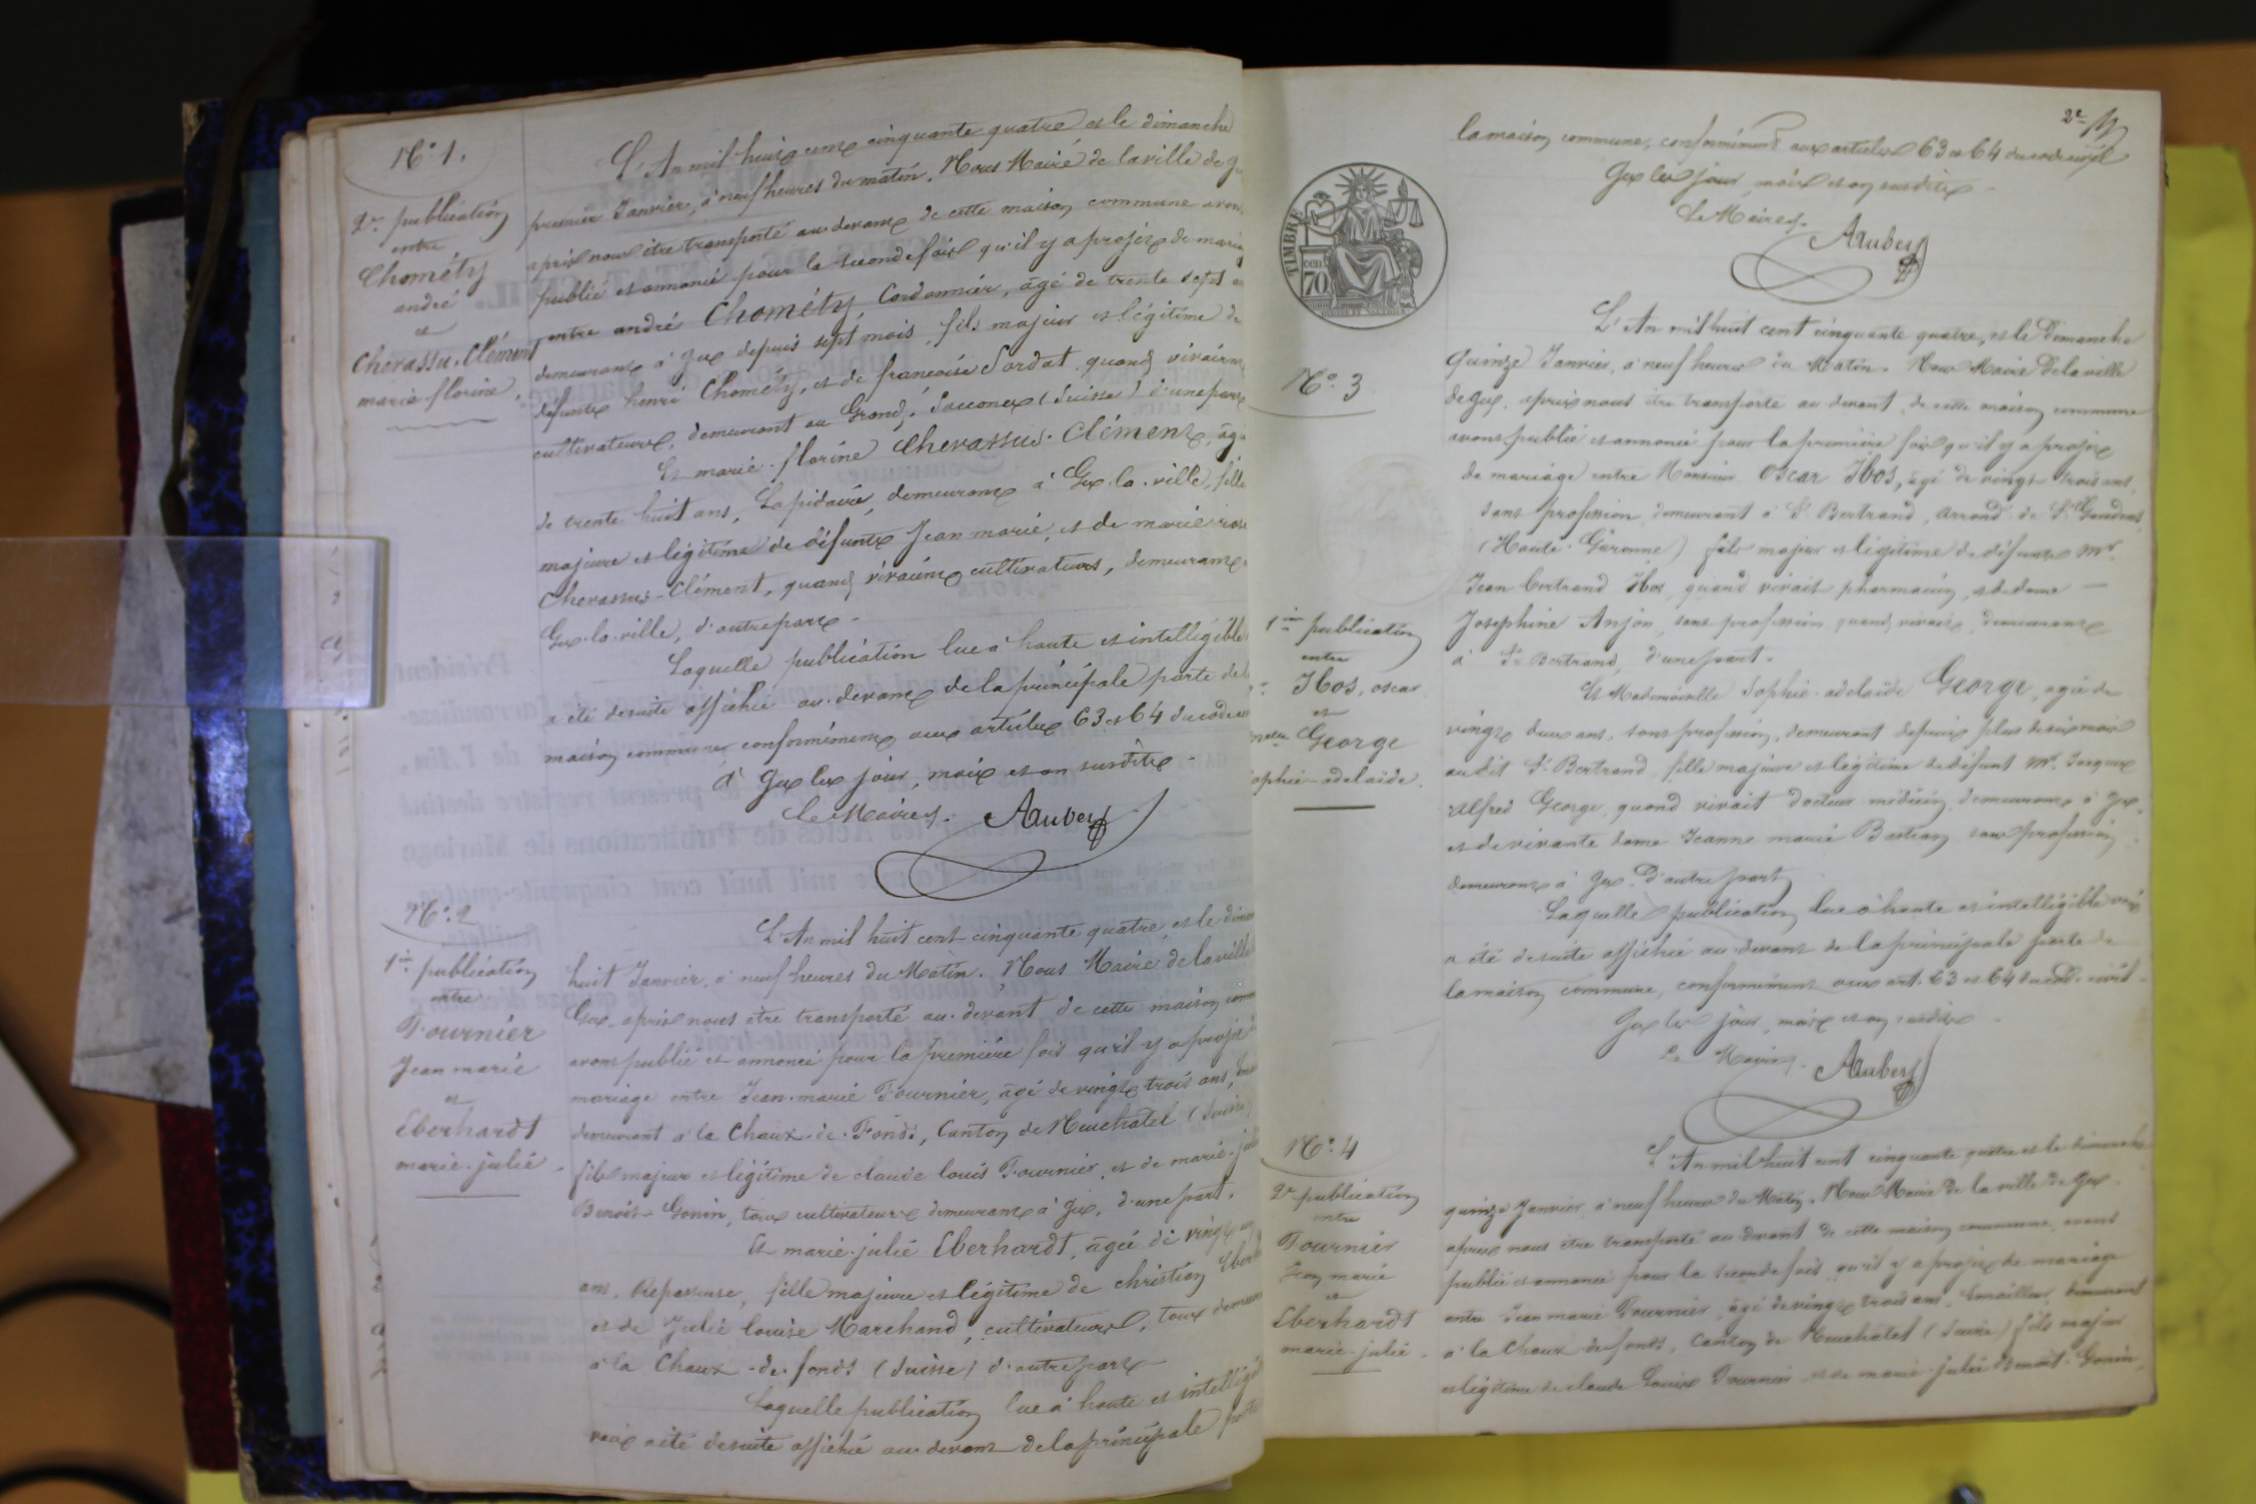 N.° 1.
2.e publication
entre
Chométy
andré
et
Chevassu-Clément
marie florine.
L'An mil huit cent cinquante quatre et le dimanche
premier Janvier, à neuf heures du matin. Nous Maire de la ville de
après nous être transporté au devant de cette maison commune avons
publié et annoncé pour la seconde fois qu'il y a projet de
entre andré Chométy Cordonnier, âgé de trente sept
demeurant à Gex depuis sept mois, fils majeur et légitime de
défunts henri Chométy, et de françoise Sordat quand vivaient
cultivateurs, demeurant au Grand Sacconex (Suisse) d'une part
Et marie-florine Chevassus-Clément, âgé
de trente huit ans, Lapidaire, demeurant à Gex-la-ville, fille
majeure et légitime de défunts Jean marie, et de marie
Chevassus-Clément, quand vivaient cultivateurs, demeurant
Gex-la-ville, d'autre part.
Laquelle publication lue à haute et intelligible
a été desuite affichée au-devant de la principale porte de
maison commune, conformément aux articles 63 et 64 du code
à Gex les jour, mois et an susdits.
Le Maire.
Aubert
N.° 2
1.re publication
entre
Fournier
Jean marie
et
Eberhardt
marie-julie.
L'An mil huit cent cinquante quatre et le
huit Janvier, à neuf heures du Matin. Nous Maire de la ville
Gex, après nous être transporté au-devant de cette maison
avons publié et annoncé pour la première fois qu'il y a projet
mariage entre Jean-marie Fournier, âgé de vingt trois ans,
demeurant à la Chaux-de-Fonds, Canton de Neuchatel (Suisse)
fils majeur et légitime de claude louis Fournier, et de marie-
Benoit-Gonin, tous cultivateurs demeurant à Gex, d'une part.
Et marie-julie Eberhardt, âgée de vingt
ans, Repasseuse, fille majeure et légitime de christian
et de Julie louise Marchand, cultivateurs, tous
à la Chaux-de-fonds (Suisse) d'autre part
Laquelle publication lue à haute et
voix a été desuite affichée au devant de la principale
2.e
la maison commune, conformément aux articles 63 et 64 du code civil
Gex les jour, mois et an susdits
Le Maire.
Aubert
TIMBRE
70
N.° 3
1.ère publication
entre
Ibos, oscar
et
George
sophie-adelaïde.
L'An mil huit cent cinquante quatre, et le Dimanche
Quinze Janvier, à neuf heures du Matin. Nous Maire de la ville
de Gex, après nous être transporté au devant de cette maison commune
avons publié et annoncé pour la première fois qu'il y a projet
de mariage entre Monsieur Oscar Ibos, âgé de vingt trois ans,
sans profession, demeurant à St. Bertrand, arrond.t de St. Gaudens
(Haute-Garonne) fils majeur et légitime de défunt Mr.
Jean bertrand Ibos, quand vivait pharmacien, et de dame
Josephine Anjou, sans profession, demeurant
à St. Bertrand, d'une part.
Et Mademoiselle Sophie-adelaïde George, agée de
vingt deux ans, sans profession, demeurant depuis plus de six mois
audit St. Bertrand fille majeure et légitime de défunt Mr. Jacques
Alfred George, quand vivait docteur médecin, demeurant à Gex,
et de vivante dame Jeanne marie Bastian, sans profession
demeurant à Gex, d'autre part
Laquelle publication lue à haute et intelligible voix
a été desuite affichée au devant de la principale porte de
la maison commune, conformément aux art. 63 et 64 du code civil
Gex les jour, mois et an susdits
Le Maire.
Aubert
N.° 4
2.e publication
entre
Fournier
Jean marie
et
Eberhardt
marie-julie.
L'An mil huit cent cinquante quatre et le dimanche
quinze Janvier, à neuf heures du Matin. Nous Maire de la ville de Gex
après nous être transporté au devant de cette maison commune, avons
publié et annoncé pour la seconde fois qu'il y a projet de mariage
entre Jean marie Fournier, âgé de vingt trois ans, Emailleur, demeurant
à la Chaux-de-fonds, Canton de Neuchatel (Suisse) fils majeur
et légitime de claude Louis Fournier et de marie-julie Benoit-Gonin,